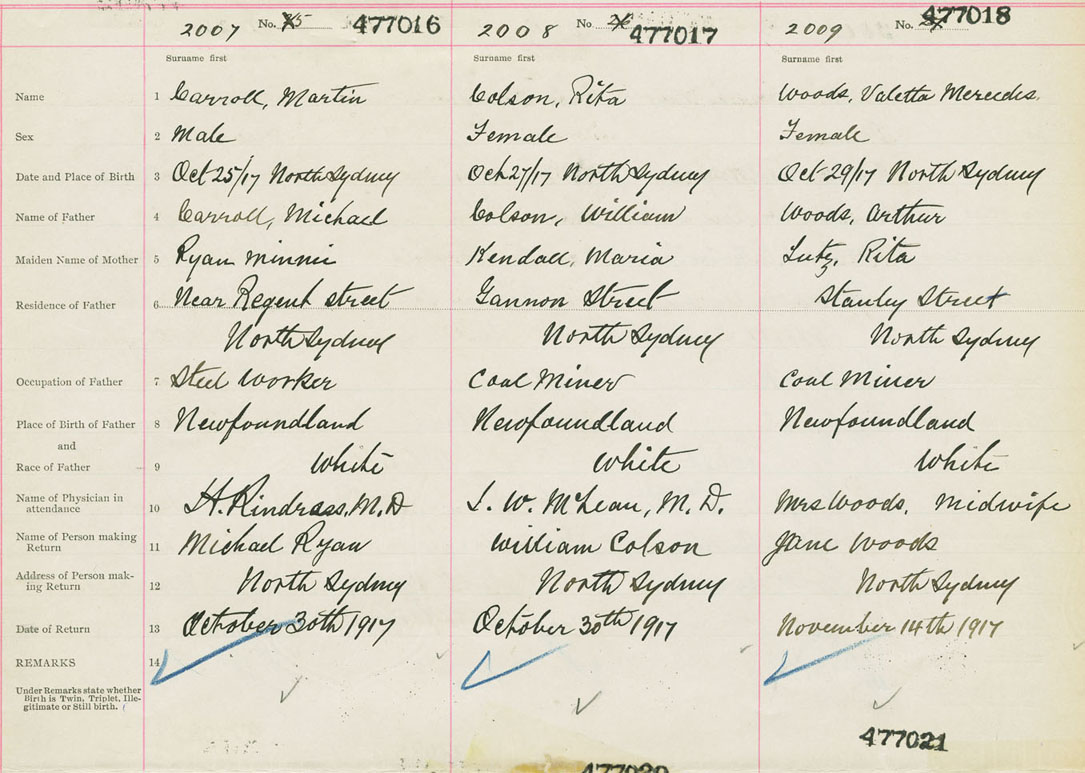 2007 No. 477016 2008 No 477017 2009 No. 477018
Surname first Surname first Surname first
Name 1 Carroll, Martin Colson, Rita Woods, Valetta Mercedes.
Sex 2 Male Female Female
Date and Place of Birth 3 Oct 25/17 North Sydney Oct 27/17 North Sydney Oct 29/17 North Sydney
Name of Father 4 Carroll, Michael Colson, William Woods, Arthur
Maiden Name of Mother 5 Ryan Minnie Kendall, Maria Lutz, Rita
Residence of Father 6 Near Regent street Gannon Street Stanley Street
North Sydney North Sydney North Sydney
Occupation of Father 7 Steel Worker Coal Miner Coal Miner
Place of Birth of Father 8 Newfoundland Newfoundland Newfoundland
and
Race of Father 9 White White White
Name of Physician in
attendance 10 H. M.D J. W. McLean, M.D. Mrs Woods, Midwife
Name of Person making
Return 11 Michael Ryan William Colson Jane Woods
Address of Person mak-
ing Return 12 North Sydney North Sydney North Sydney
Date of Return 13 October 30th 1917 October 30th 1917 November 14th 1917
REMARKS 14
Under Remarks state whether
Birth is Twin, Triplet, Ille-
gitimate or Still birth.
477021